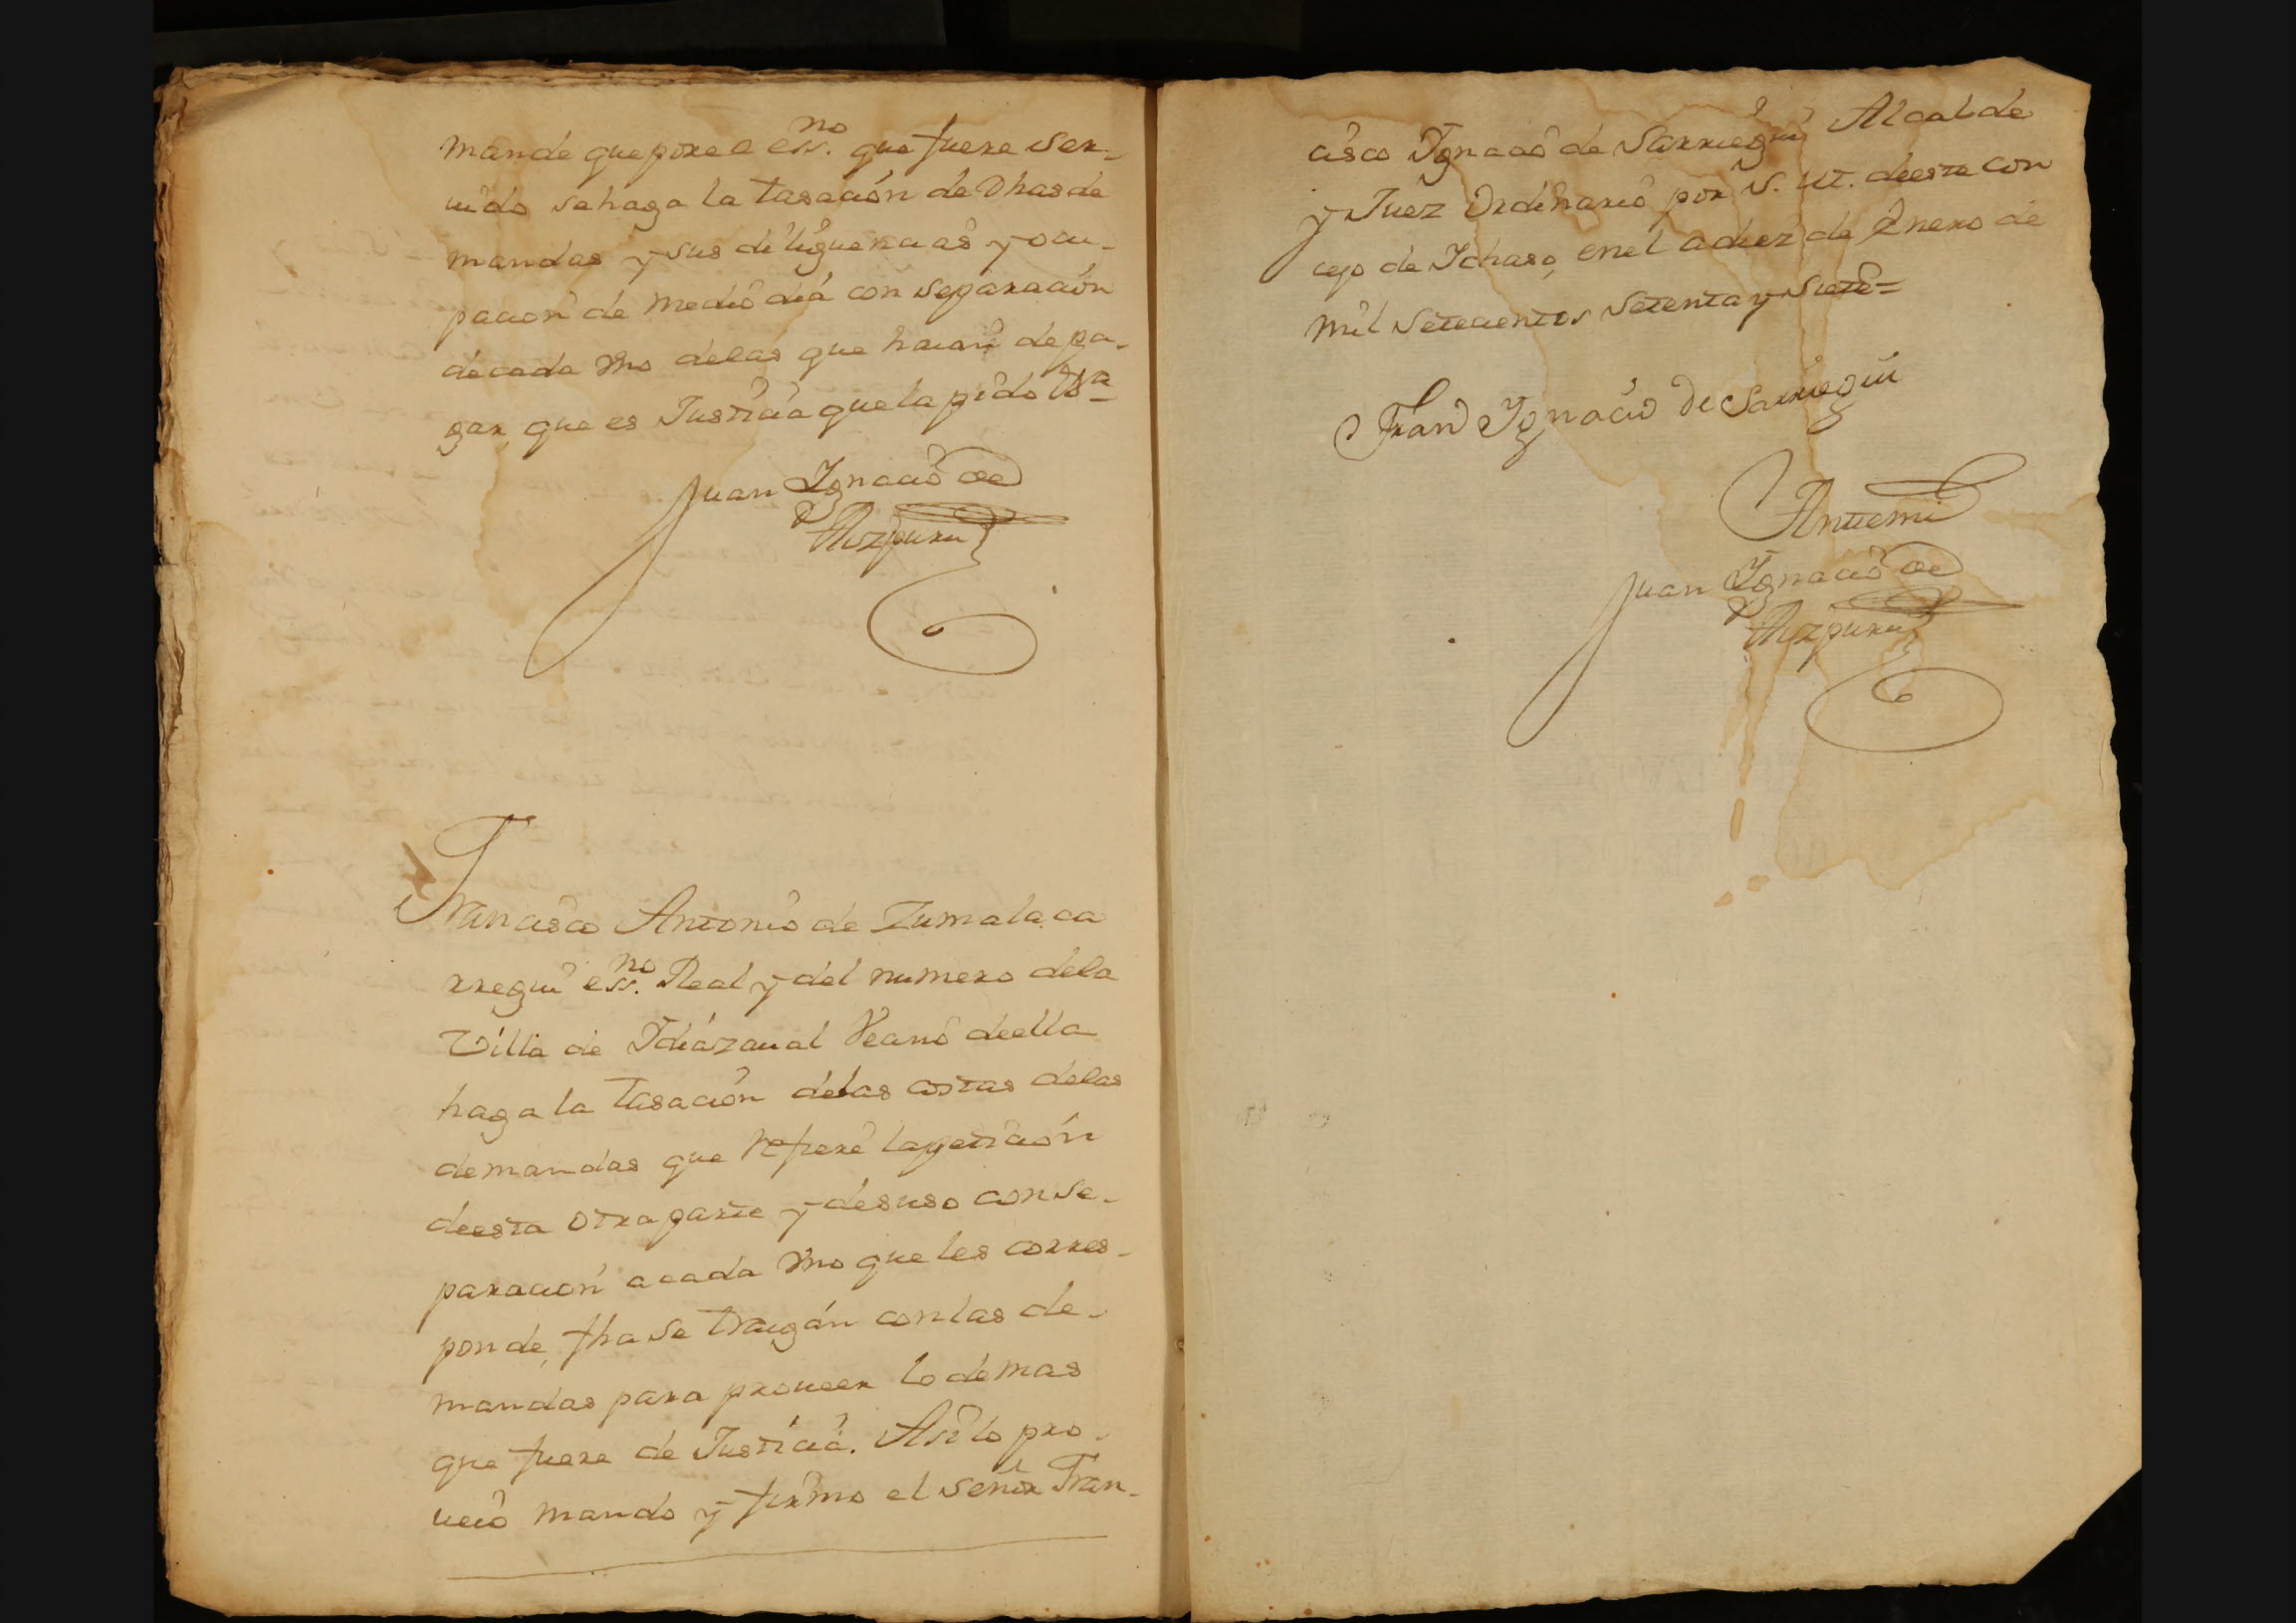 mande que por el ess.no que fuere ser-
uido se haga la tasación de Dhas de
mandas y sus diliguencias y ocu-
pacion de medio dia con separación
de cada vno delas que hauan de pa-
gar, que es Justicia que la pido Vsa
Juan Ignacio de
Aizpuru
Francisco Antonio de Zumalaca
rregui ess.no Real y del numero dela
Villa de Idiazaual Vecino de ella
haga la tasación delas costas delas
demandas que refiere la petición
de esta otra parte y de suso con se-
paracion a cada vno que les corres-
ponde, fha se traigán con las de-
mandas para proueer lo demas
que fuere de Justicia. Asi lo pro-
ueió mando y firmo el señor Fran-
cisco Ignacio de Sarriegui Alcalde
y Juez Ordinario por S. M. de este con
cejo de Ichaso, en el a diez de Enero de
mil setecientos setenta y siete=
Fran Ignacio de Sarriegui
Antemi
Juan Ignacio de
Aizpuru